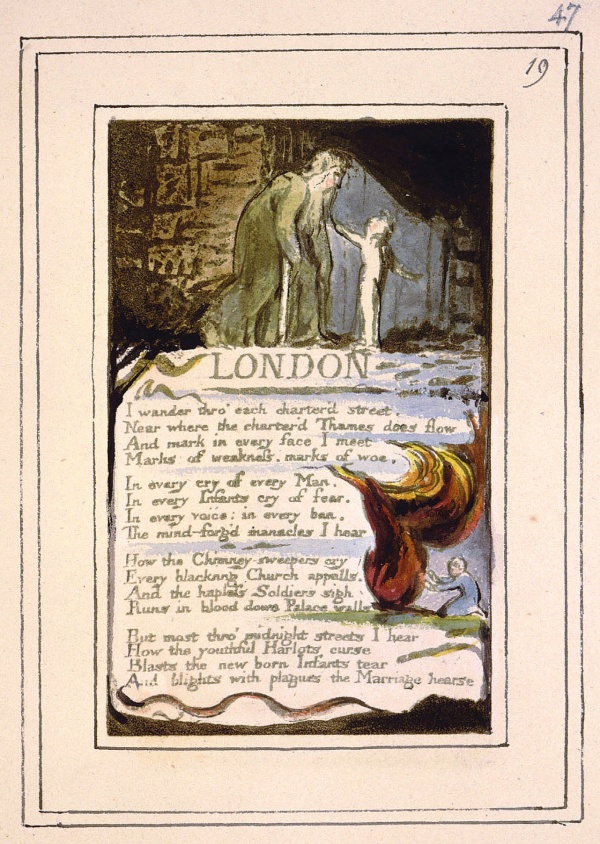 47
19
LONDON
I wander thro' each charter'd street,
Near where the charter'd Thames does flow
And mark in every face I meet
Marks of weakness, marks of woe.
In every cry of every Man,
In every Infants cry of fear,
In every voice; in every ban,
The mind-forg'd manacles I hear
How the Chimney-sweepers cry
Every blackning Church appalls,
And the hapless Soldiers sigh
Runs in blood down Palace walls
But most thro' midnight streets I hear
How the youthful Harlots curse
Blasts the new born Infants tear
And blights with plagues the Marriage hearse